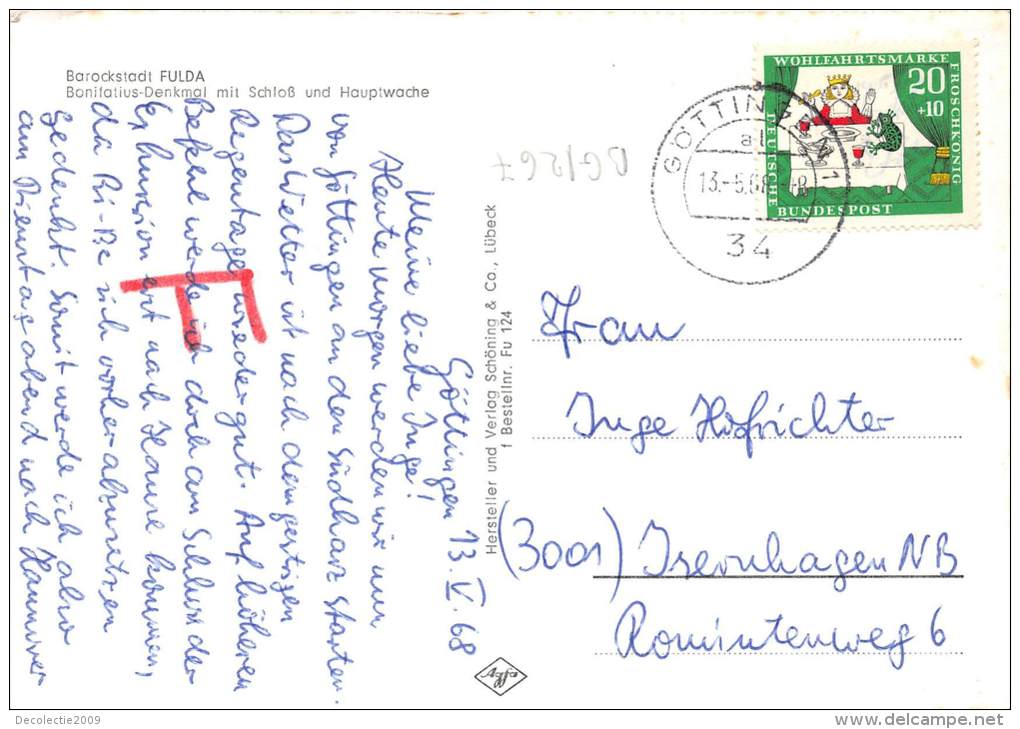 Barockstadt FULDA
Bonifatius-Denkmal mit Schloß und Hauptwache
WOHLFAHRTSMARKE
FROSCHKÖNIG
20
+10
DEUTSCHE
BUNDESPOST
GÖTTINGEN 1
13.-5.68
34
DG1267
Göttingen 13. V. 68
Meine liebe Inge!
Heute morgen werden wir nun
von Göttingen an den Südharz starten.
Das Wetter ist nach dem gestrigen
Regentage wieder gut. Auf höheren
Befehl werde ich doch am Schluss der
Exkursion erst nach Hause kommen,
da Ri-Be sich vorher abzusetzen
gedenkt. Somit werde ich also
am Dienstag abend nach Hannover
Hersteller und Verlag Schöning & Co., Lübeck
1 Bestellnr. FU 124
Agfa
Frau
Inge Hofrichter
(3001) Isernhagen NB
Romintenweg 6
Decolectie2009
www.delcampe.net